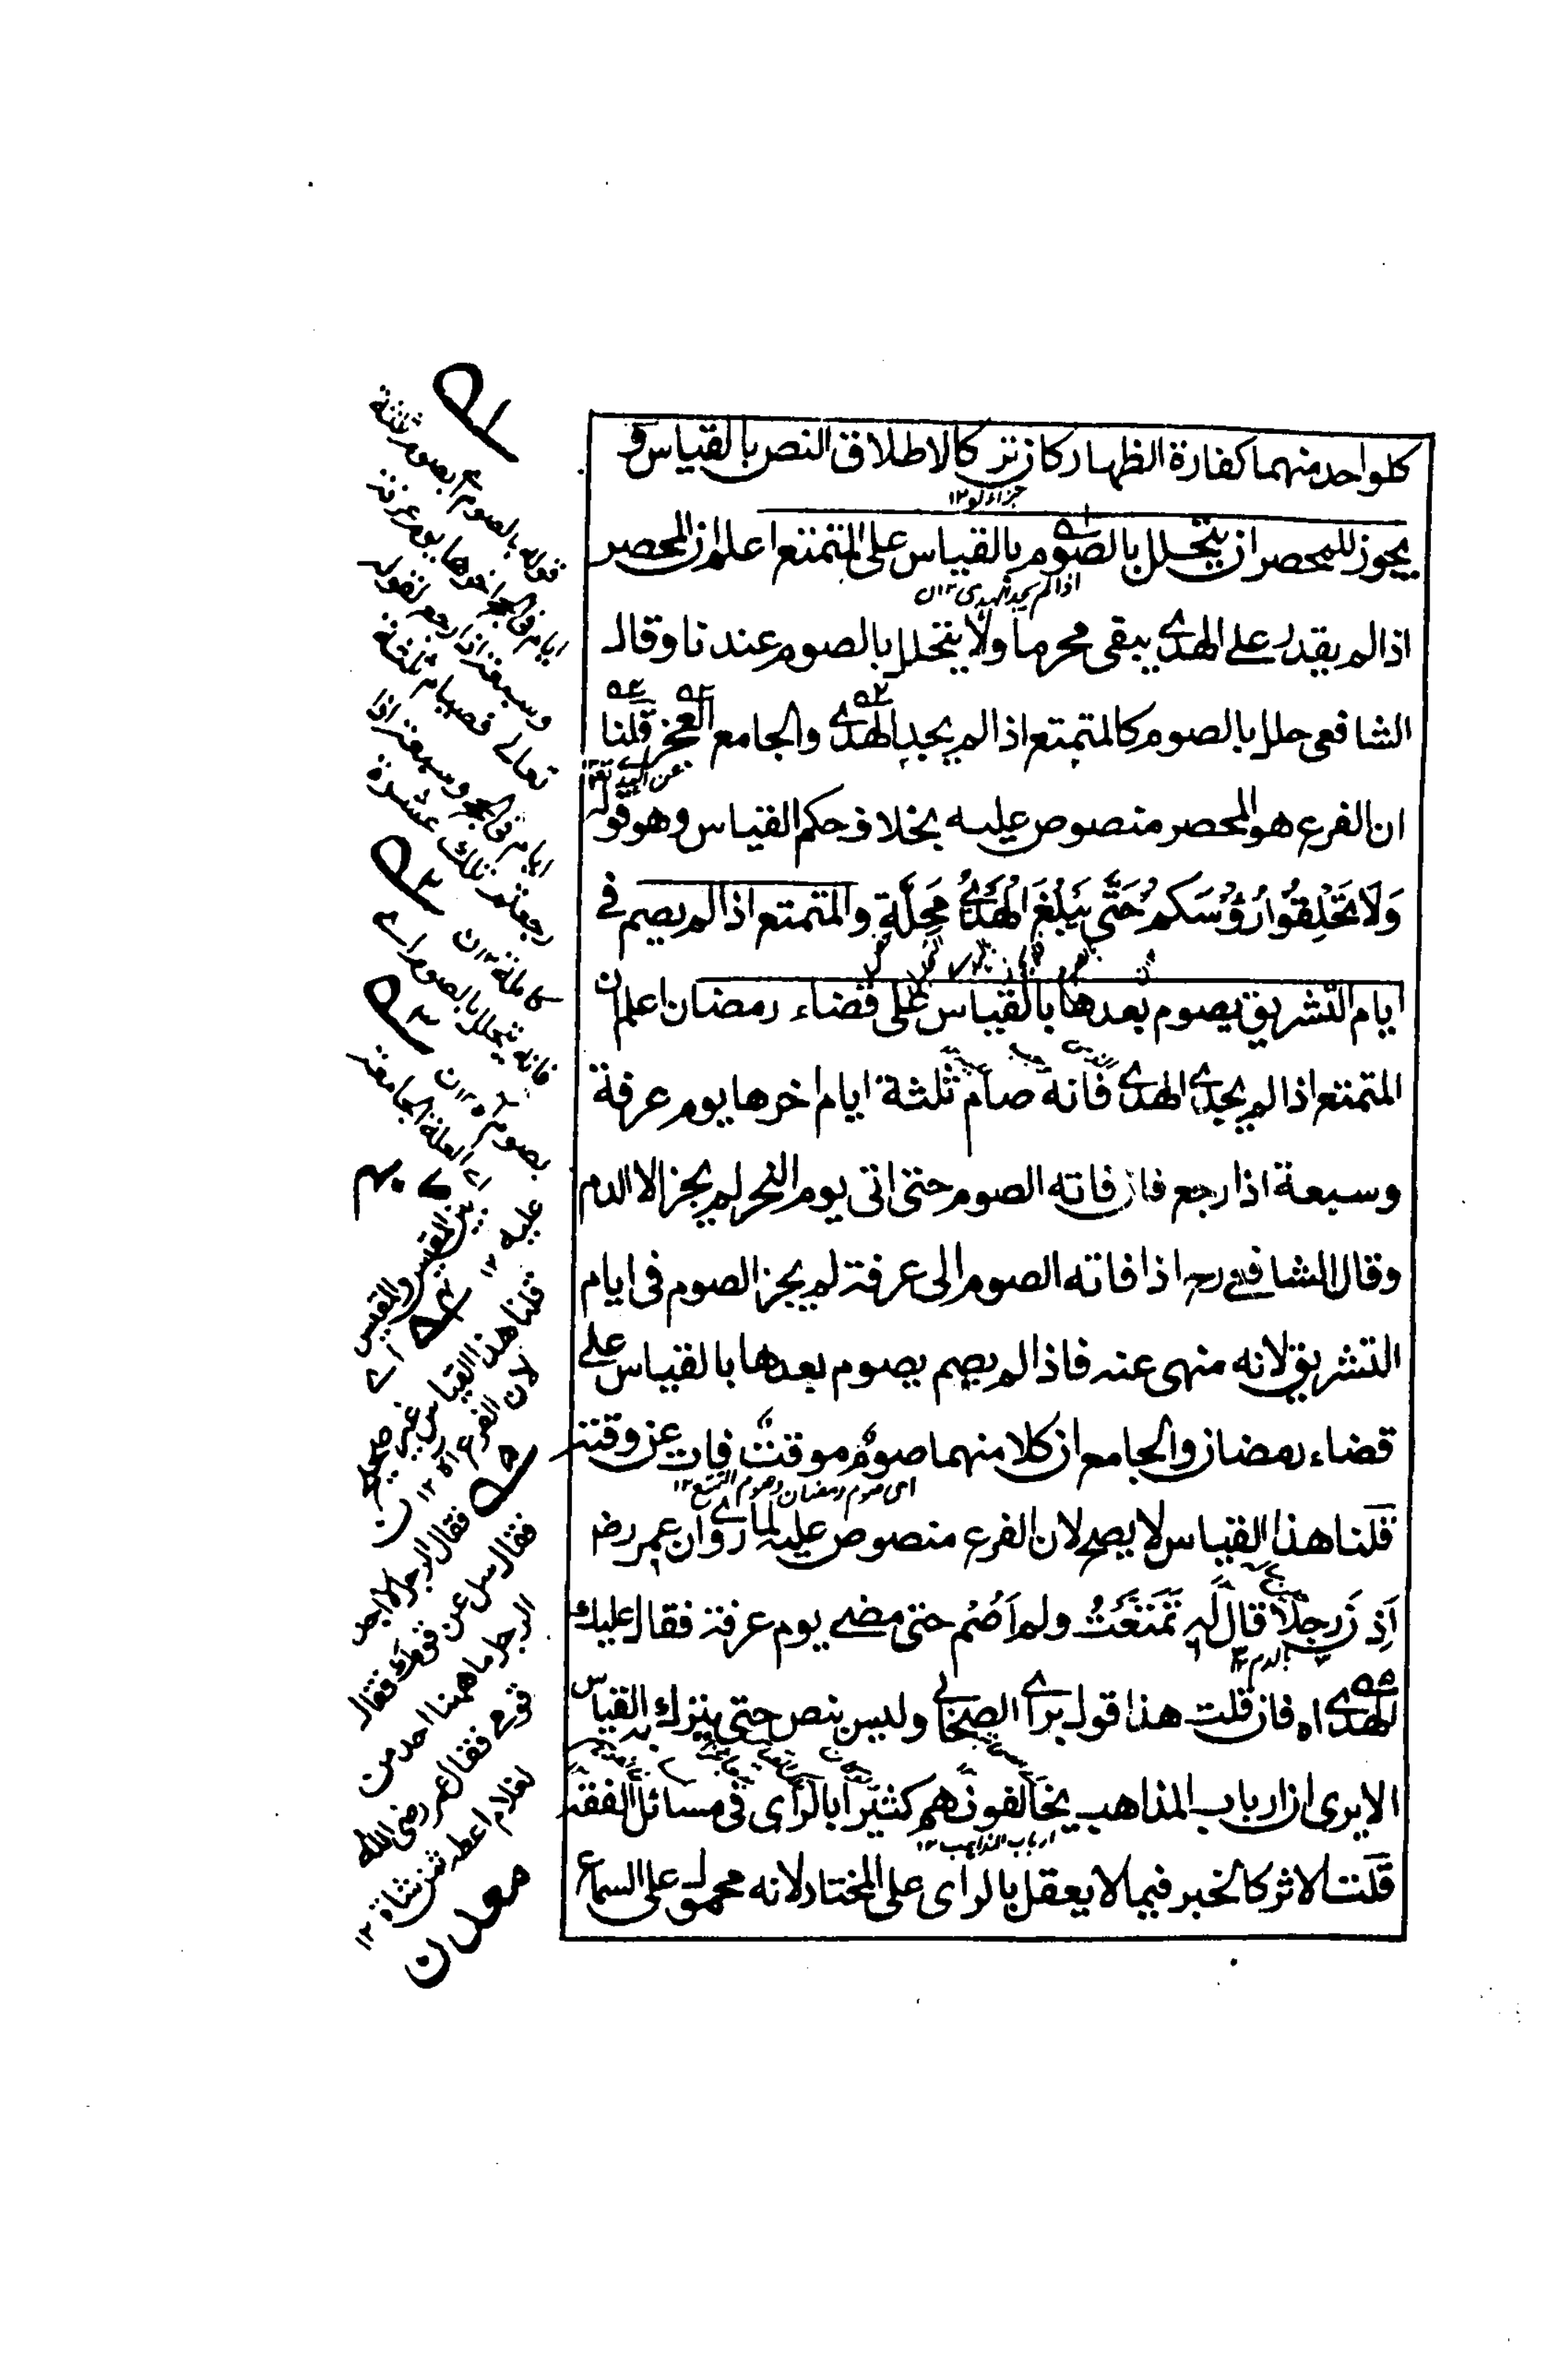 كلواحد منهما كفارة الظهار كان تركا لاطلاق النص بالقياس و
جزاء لو ١٢
يجوز للمحصر ان يتحلل بالصوم بالقياس على المتمتع اعلم ان المحصر
اذا لم يجد الهدى ١٢ن
اذا لم يقدر على الهدى يبقى محرما ولا يتحلل بالصوم عندنا وقال
الشافعى حلل بالصوم كالمتمتع اذا لم يجد الهدى والجامع العجز قلنا
ان الفرع هو المحصر منصوص عليه بخلاف حكم القياس وهو قوله
وَلَا تَحْلِقُوا رُؤُسَكُمْ حَتَّى يَبْلُغَ الْهَدْىُ مَحِلَّهٗ والمتمتع اذا لم يصم فى
ايام التشريق يصوم بعدها بالقياس على قضاء رمضان اعلم ان
المتمتع اذا لم يجد الهدى فانه صام ثلثة ايام اخرها يوم عرفة
وسبعة اذا رجع فان فاته الصوم حتى اتى يوم النحر لم يجز الا الدم
وقال الشافعى رح اذا فاته الصوم الى عرفة لم يجز الصوم فى ايام
التشريق لانه منهى عنه فاذا لم يصم يصوم بعدها بالقياس على
قضاء رمضان والجامع ان كلا منهما صوم موقت فات عن وقته
اى صوم رمضان وصوم التمتع ١٢
قلنا هذا القياس لا يصح لان الفرع منصوص عليه لما روى ان عمر رض
اذ ن رجلا قال له تمتعت ولم اصم حتى مضى يوم عرفة فقال عليك
الهدى اه فان قلت هذا قول براى الصحابى وليس بنص حتى يترك به القياس
الا يرى ان ارباب المذاهب يخالفونهم كثيرا بالراى فى مسائل الفقه
ارباب المذاهب ١٢
قلت الاثر كالخبر فيما لا يعقل بالراى على المختار لانه محمول على السماع
قوله بالصوم اى بصوم ثلثة
ايام فى الحج اخرها يوم عرفة
وسبعة اذا رجع لقوله
تعالى فصيام ثلثة
ايام فى الحج وسبعة اذا
رجعتم تلك عشرة
كاملة ١٢ن
فانه يتحلل بالصوم اى
بصوم
اى العلة الجامعة
بين المقيس والمقيس
عليه ١٢
اى
قلنا هذا القياس غير صحيح
لان الفرع اه ١٢ن
فقال الرجل لا اجد
فقال سل عن قومك فقال
الرجل ما ههنا احد من
قومى فقال عمر رضى الله
لغلام اعطه ثمن شاة ١٢
معدن